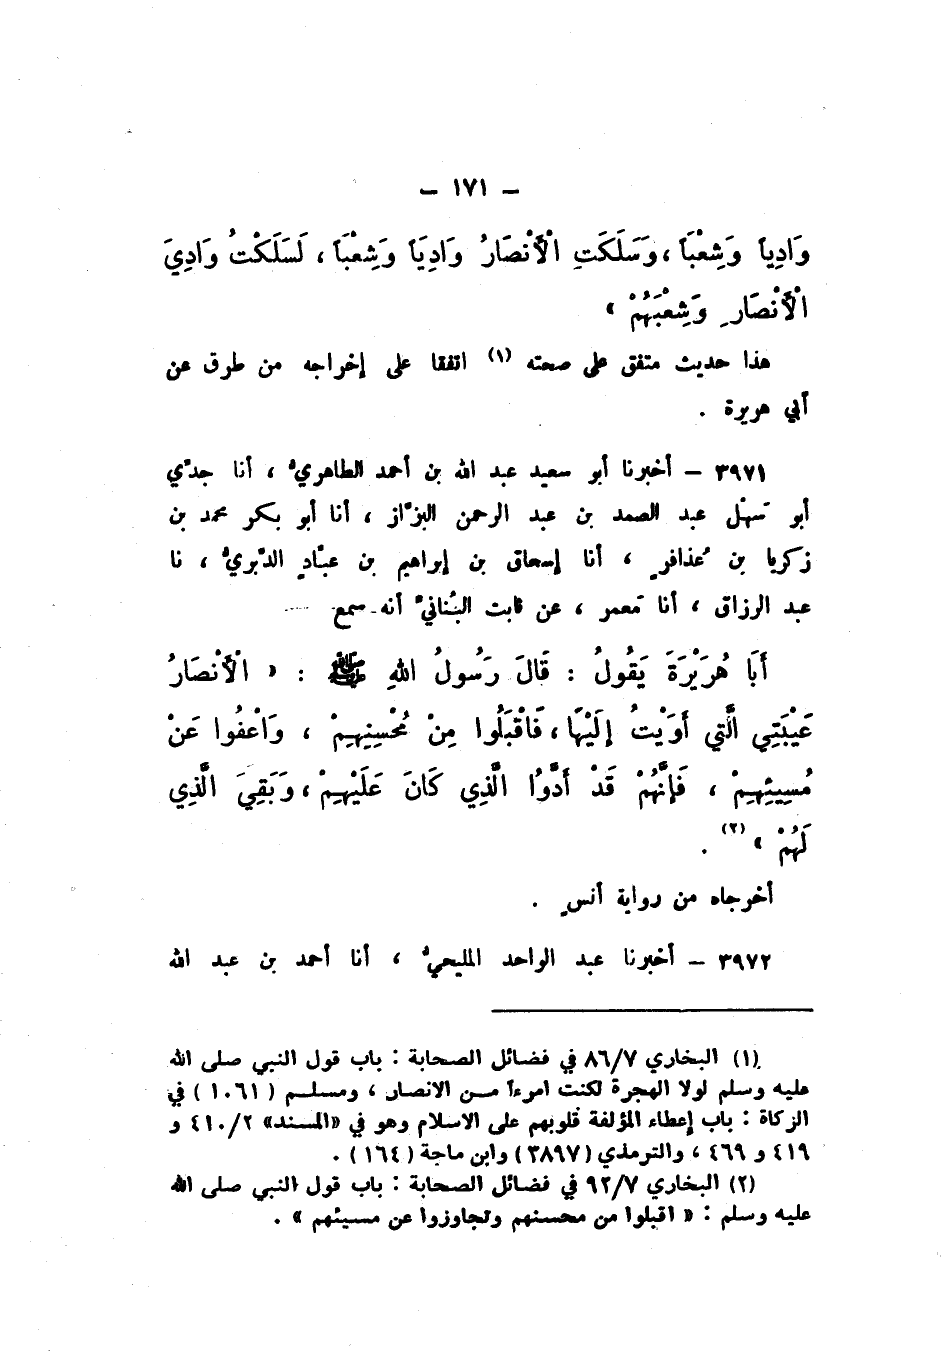 – ١٧١ –
وَادِياً وَشِعْبَاً ، وَسَلَكَتِ الْأَنْصَارُ وَادِيَاً وَشِعْبَاً ، لَسَلَكْتُ وَادِيَ
الْأَنْصَارِ وَشِعْبَهُمْ »
هذا حديث متفق على صحته (١) اتفقا على إخراجه من طرق عن
أبي هريرة .
٣٩٧١ – أخبرنا أبو سعيد عبد الله بن أحمد الطاهريُّ ، أنا جدّي
أبو سَهْل عبد الصمد بن عبد الرحمن البزّاز ، أنا أبو بكر محمد بن
زكريا بن عُذافرٍ ، أنا إسحاق بن إبراهيم بن عبّادٍ الدَّبَريُّ ، نا
عبد الرزاق ، أنا مَعمر ، عن ثابت البُنانيِّ أنه سمع
أَبَا هُرَيْرَةَ يَقُولُ : قَالَ رَسُولُ اللهِ ﷺ : « الْأَنْصَارُ
عَيْبَتِي الَّتِي أَوَيْتُ إِلَيْهَا ، فَاقْبَلُوا مِنْ مُحْسِنِهِمْ ، وَاعْفُوا عَنْ
مُسِيئِهِمْ ، فَإِنَّهُمْ قَدْ أَدَّوُا الَّذِي كَانَ عَلَيْهِمْ ، وَبَقِيَ الَّذِي
لَهُمْ » (٢) .
أخرجاه من رواية أنسٍ .
٣٩٧٢ – أخبرنا عبد الواحد المليحيُّ ، أنا أحمد بن عبد الله
(١) البخاري ٨٦/٧ في فضائل الصحابة : باب قول النبي صلى الله
عليه وسلم لولا الهجرة لكنت امرءاً مــن الانصار ، ومسلــم ( ١٠٦١ ) في
الزكاة : باب إعطاء المؤلفة قلوبهم على الاسلام وهو في «المسند» ٤١٠/٢ و
٤١٩ و ٤٦٩ ، والترمذي (٣٨٩٧) وابن ماجة (١٦٤) .
(٢) البخاري ٩٢/٧ في فضائل الصحابة : باب قول النبي صلى الله
عليه وسلم : « اقبلوا من محسنهم وتجاوزوا عن مسيئهم » .